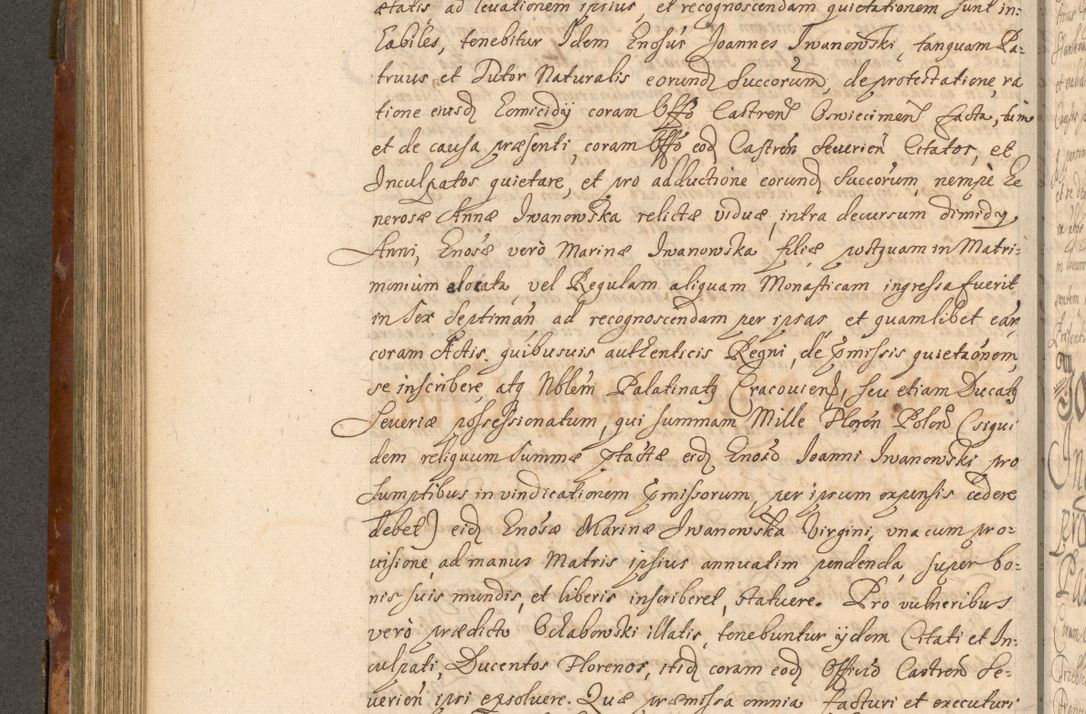 ætatis ad levationem ipsius, et recognoscendam quietationem sunt in-
habiles, tenebitur Idem Gnosus Joannes Iwanowski, tanquam Pa-
truus, et Tutor Naturalis eorund Succorum, de protestatione, ra
tione eiusd Homicidy coram Offo Castren Oswiecimen facta, tum
et de causa præsenti, coram Offo eod Castren Severien Citatos, et
Inculpatos quietare, et pro adductione eorund Succorum, nempè Ge
nerosæ Annæ Iwanowska relictæ viduæ, intra decursum dimidy
Anni, Gnosæ verò Marinæ Iwanowska filiæ postquam in Matri-
monium elocata, vel Regulam aliquam Monasticam ingressa fuerit
in Sex Septiman ad recognoscendam per ipsas, et quamlibet ear
coram Actis quibusuis authenticis Regni, de præmissis quietaonem,
se inscribere, atq Nblem Palatinatq Cracovien, seu etiam Ducatq
Severiæ possessionatum, qui summam Mille Floren Polon (siqui
dem reliquum Summæ ptactæ eid Gnoso Joanni Iwanowski pro
sumptibus in vindicationem præmissorum, per ipsum expensis cedere
debet) eid Gnosæ Marinæ Iwanowska Virgini, una cum pro-
uisione, ad manus Matris ipsius annuatim pendenda, super bo-
nis suis mundis, et liberis inscriberet, statuere. Pro vulneribus
verò prædicto Ochabowski illatis, tenebuntur ydem Citati et In-
culpati, Ducentos Florenos, itid coram eod Officio Castren Se-
verien ipsi exsolvere. Quæ præmissa omnia facturi et executuri